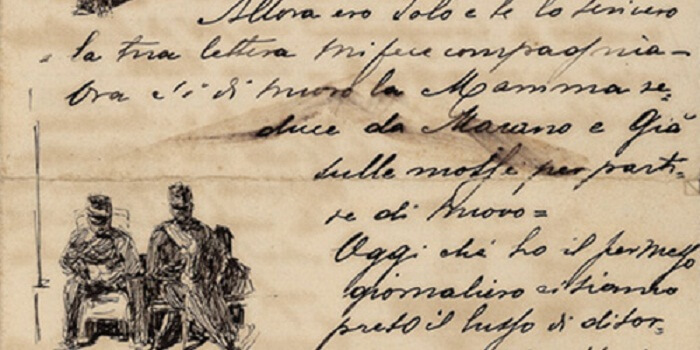 Allora ero solo e te lo sincero
la tua lettera mi fece compagnia=
Ora c'è di nuovo la Mamma re=
duce da Marano e Già
sulle mosse per parti=
re di nuovo=
Oggi chè ho il permesso
giornaliero ci siamo
preso il lusso di distor=